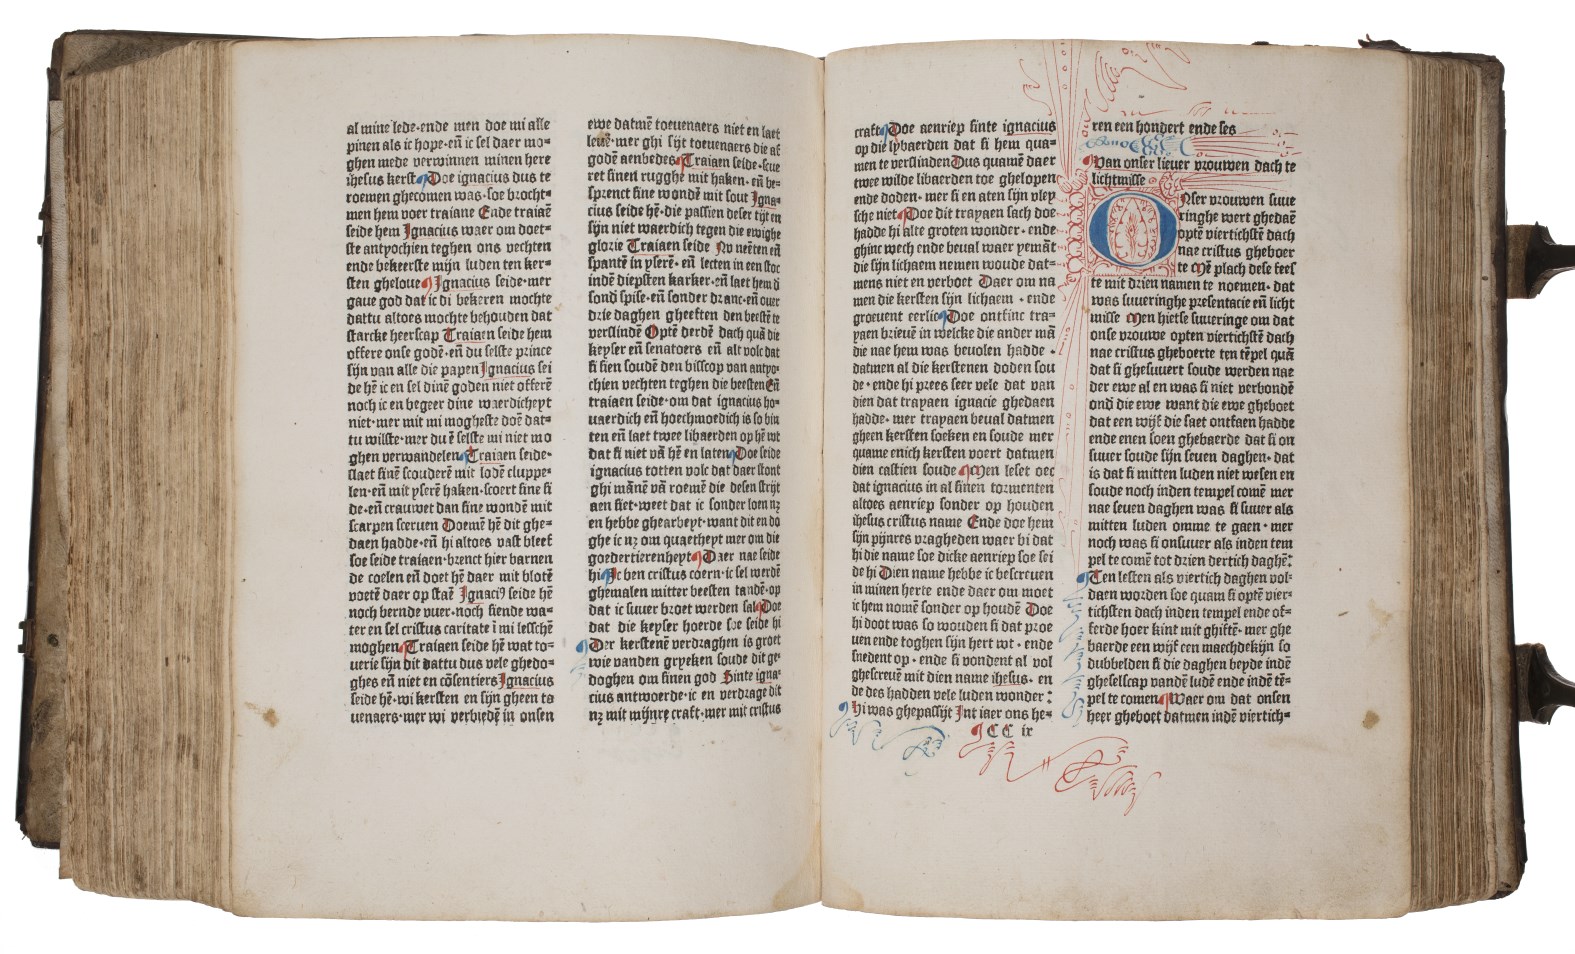 al mine lede·ende men doe mi alle
pinen als ic hope·eñ ic sel daer mo=
ghen mede verwinnen minen here
ihesus kerst Doe ignacius dus te
roemen ghecomen was·soe brocht=
men hem voer traiane Ende traiaẽ
seide hem Ignacius waer om doet=
ste antyochien teghen ons vechten
ende bekeerste mijn luden ten ker=
sten gheloue Ignacius seide·mer
gaue god dat ic di bekeren mochte
dattu altoes mochte behouden dat
starcke heerscap Traiaen seide hem
offere onse godẽ·eñ du selste prince
sijn van alle die papen Ignacius sei
de hẽ ic en sel dinẽ goden niet offerẽ
noch ic en begeer dine waerdicheyt
niet·mer mit mi mogheste doẽ dat=
tu wilste·mer du ẽ selste mi niet mo
ghen verwandelen Traiaen seide·
slaet sinẽ scouderẽ mit lodẽ cluppe=
len·eñ mit yserẽ haken·scoert sine si
de·eñ crauwet dan sine wondẽ mit
scarpen sceruen Doemẽ hẽ dit ghe=
daen hadde·eñ hi altoes vast bleef
soe seide traiaen·brenct hier barnen
de coelen eñ doet hẽ daer mit blotẽ
voetẽ daer op staẽ Ignaci9 seide hẽ
noch bernde vuer·noch siende wa=
ter en sel cristus caritate ĩ mi lesschẽ
moghen Traiaen seide hẽ wat to=
uerie sijn dit dattu dus vele ghedo=
ghes eñ niet en cõsentiers Ignacius
seide hẽ·wi kersten en sijn gheen to
uenaers·mer wi verbiedẽ in onsen
ewe datmẽ toeuenaers niet en laet
leuẽ·mer ghi sijt toeuenaers die af
godẽ aenbedes Traiaen seide·scue
ret sinen rugghe mit haken·eñ be=
sprenct sine wondẽ mit sout Igna=
cius seide hẽ·die passien deser tijt en
sijn niet waerdich tegen die ewighe
glorie Traiaen seide Nv neẽten eñ
spantẽ in yserẽ·eñ lecten in een stoc
indẽ diepsten karker·eñ laet hem ð
sond spise·eñ sonder dranc·eñ ouer
drie daghen gheeften den beestẽ te
verslindẽ Optẽ derdẽ dach quã die
keyser eñ senatoers eñ alt volc dat
si sien soudẽ den bisscop van antyo=
chien vechten teghen die beesten Eñ
traiaen seide·om dat ignacius ho=
uaerdich eñ hoechmoedich is so bin
ten eñ laet twee libaerden op hẽ wt
dat si niet vã hẽ en laten Doe seide
ignacius totten volc dat daer stont
ghi mãnẽ vã roemẽ die desen strijt
aen siet·weet dat ic sonder loen nz
en hebbe ghearbeyt·want dit en do
ghe ic nz om quaetheyt mer om die
goedertierenheyt Daer nae seide
hi Ic ben cristus coern·ic sel werdẽ
ghemalen mitter beesten tandẽ·op
dat ic suuer broet werden sal Doe
dat die keyser hoerde soe seide hi
Der kerstenẽ verdzaghen is groet
wie vanden gryeken soude dit ge=
doghen om sinen god Sinte igna=
cius antwoerde·ic en verdzage dit
nz mit mijnre craft·mer mit cristus
craft Doe aenriep sinte ignacius
op die lybaerden dat si hem qua=
men te verslinden Dus quamẽ daer
twee wilde libaerden toe ghelopen
ende doden·mer si en aten sijn vley
sche niet Doe dit trayaen sach doe
hadde hi alte groten wonder·ende
ghinc wech ende beual waer yemãt
die sijn lichaem nemen woude dat=
mens niet en verboet Daer om na
men die kersten sijn lichaem·ende
groeuent eerlic Doe ontfinc tra=
yaen brieuẽ in welcke die ander mã
die nae hem was beuolen hadde·
datmen al die kerstenen doden sou
de·ende hi prees seer vele dat van
dien dat trayaen ignacie ghedaen
hadde·mer trayaen beual datmen
gheen kersten soeken en soude mer
quame enich kersten voert datmen
dien castien soude Men leset oec
dat ignacius in al sinen tormenten
altoes aenriep sonder op houden
ihesus cristus name Ende doe hem
sijn pijnres vragheden waer bi dat
hi die name soe dicke aenriep soe sei
de hi Dien name hebbe ic bescreuen
in minen herte ende daer om moet
ic hem nomẽ sonder op houdẽ Doe
hi doot was so wouden si dat proe
uen ende toghen sijn hert wt·ende
snedent op·ende si vondent al vol
ghescreuẽ mit dien name ihesus·en
de des hadden vele luden wonder:
Hi was ghepassijt Int iaer ons he=
CC ix
ren een hondert ende ses
Van onser lieuer vrouwen dach te
lichtmisse
Onser vrouwen suue
ringhe wert ghedaẽ
optẽ viertichstẽ dach
nae cristus gheboer
te Mẽ plach dese fees
te mit drien namen te noemen·dat
was suueringhe presentacie eñ licht
misse Men hietse suueringe om dat
onse vrouwe opten viertichstẽ dach
nae cristus gheboerte ten tẽpel quã
dat si ghesuuert soude werden nae
der ewe al en was si niet verbondẽ
ond die ewe want die ewe gheboet
dat een wijf die saet ontfaen hadde
ende enen soen ghebaerde dat si on
suuer soude sijn seuen daghen·dat
is dat si mitten luden niet wesen en
soude noch inden tempel comẽ mer
nae seuen daghen was si suuer als
mitten luden omme te gaen·mer
noch was si onsuuer als inden tem
pel te comẽ tot drien dertich daghẽ:
Ten lesten als viertich daghen vol=
daen worden soe quam si optẽ vier=
tichsten dach inden tempel ende of=
ferde hoer kint mit ghiftẽ·mer ghe
baerde een wijf een maechdekijn so
dubbelden si die daghen beyde indẽ
gheselscap vandẽ ludẽ ende indẽ tẽ=
pel te comen Waer om dat onsen
heer gheboet datmen indẽ viertich=